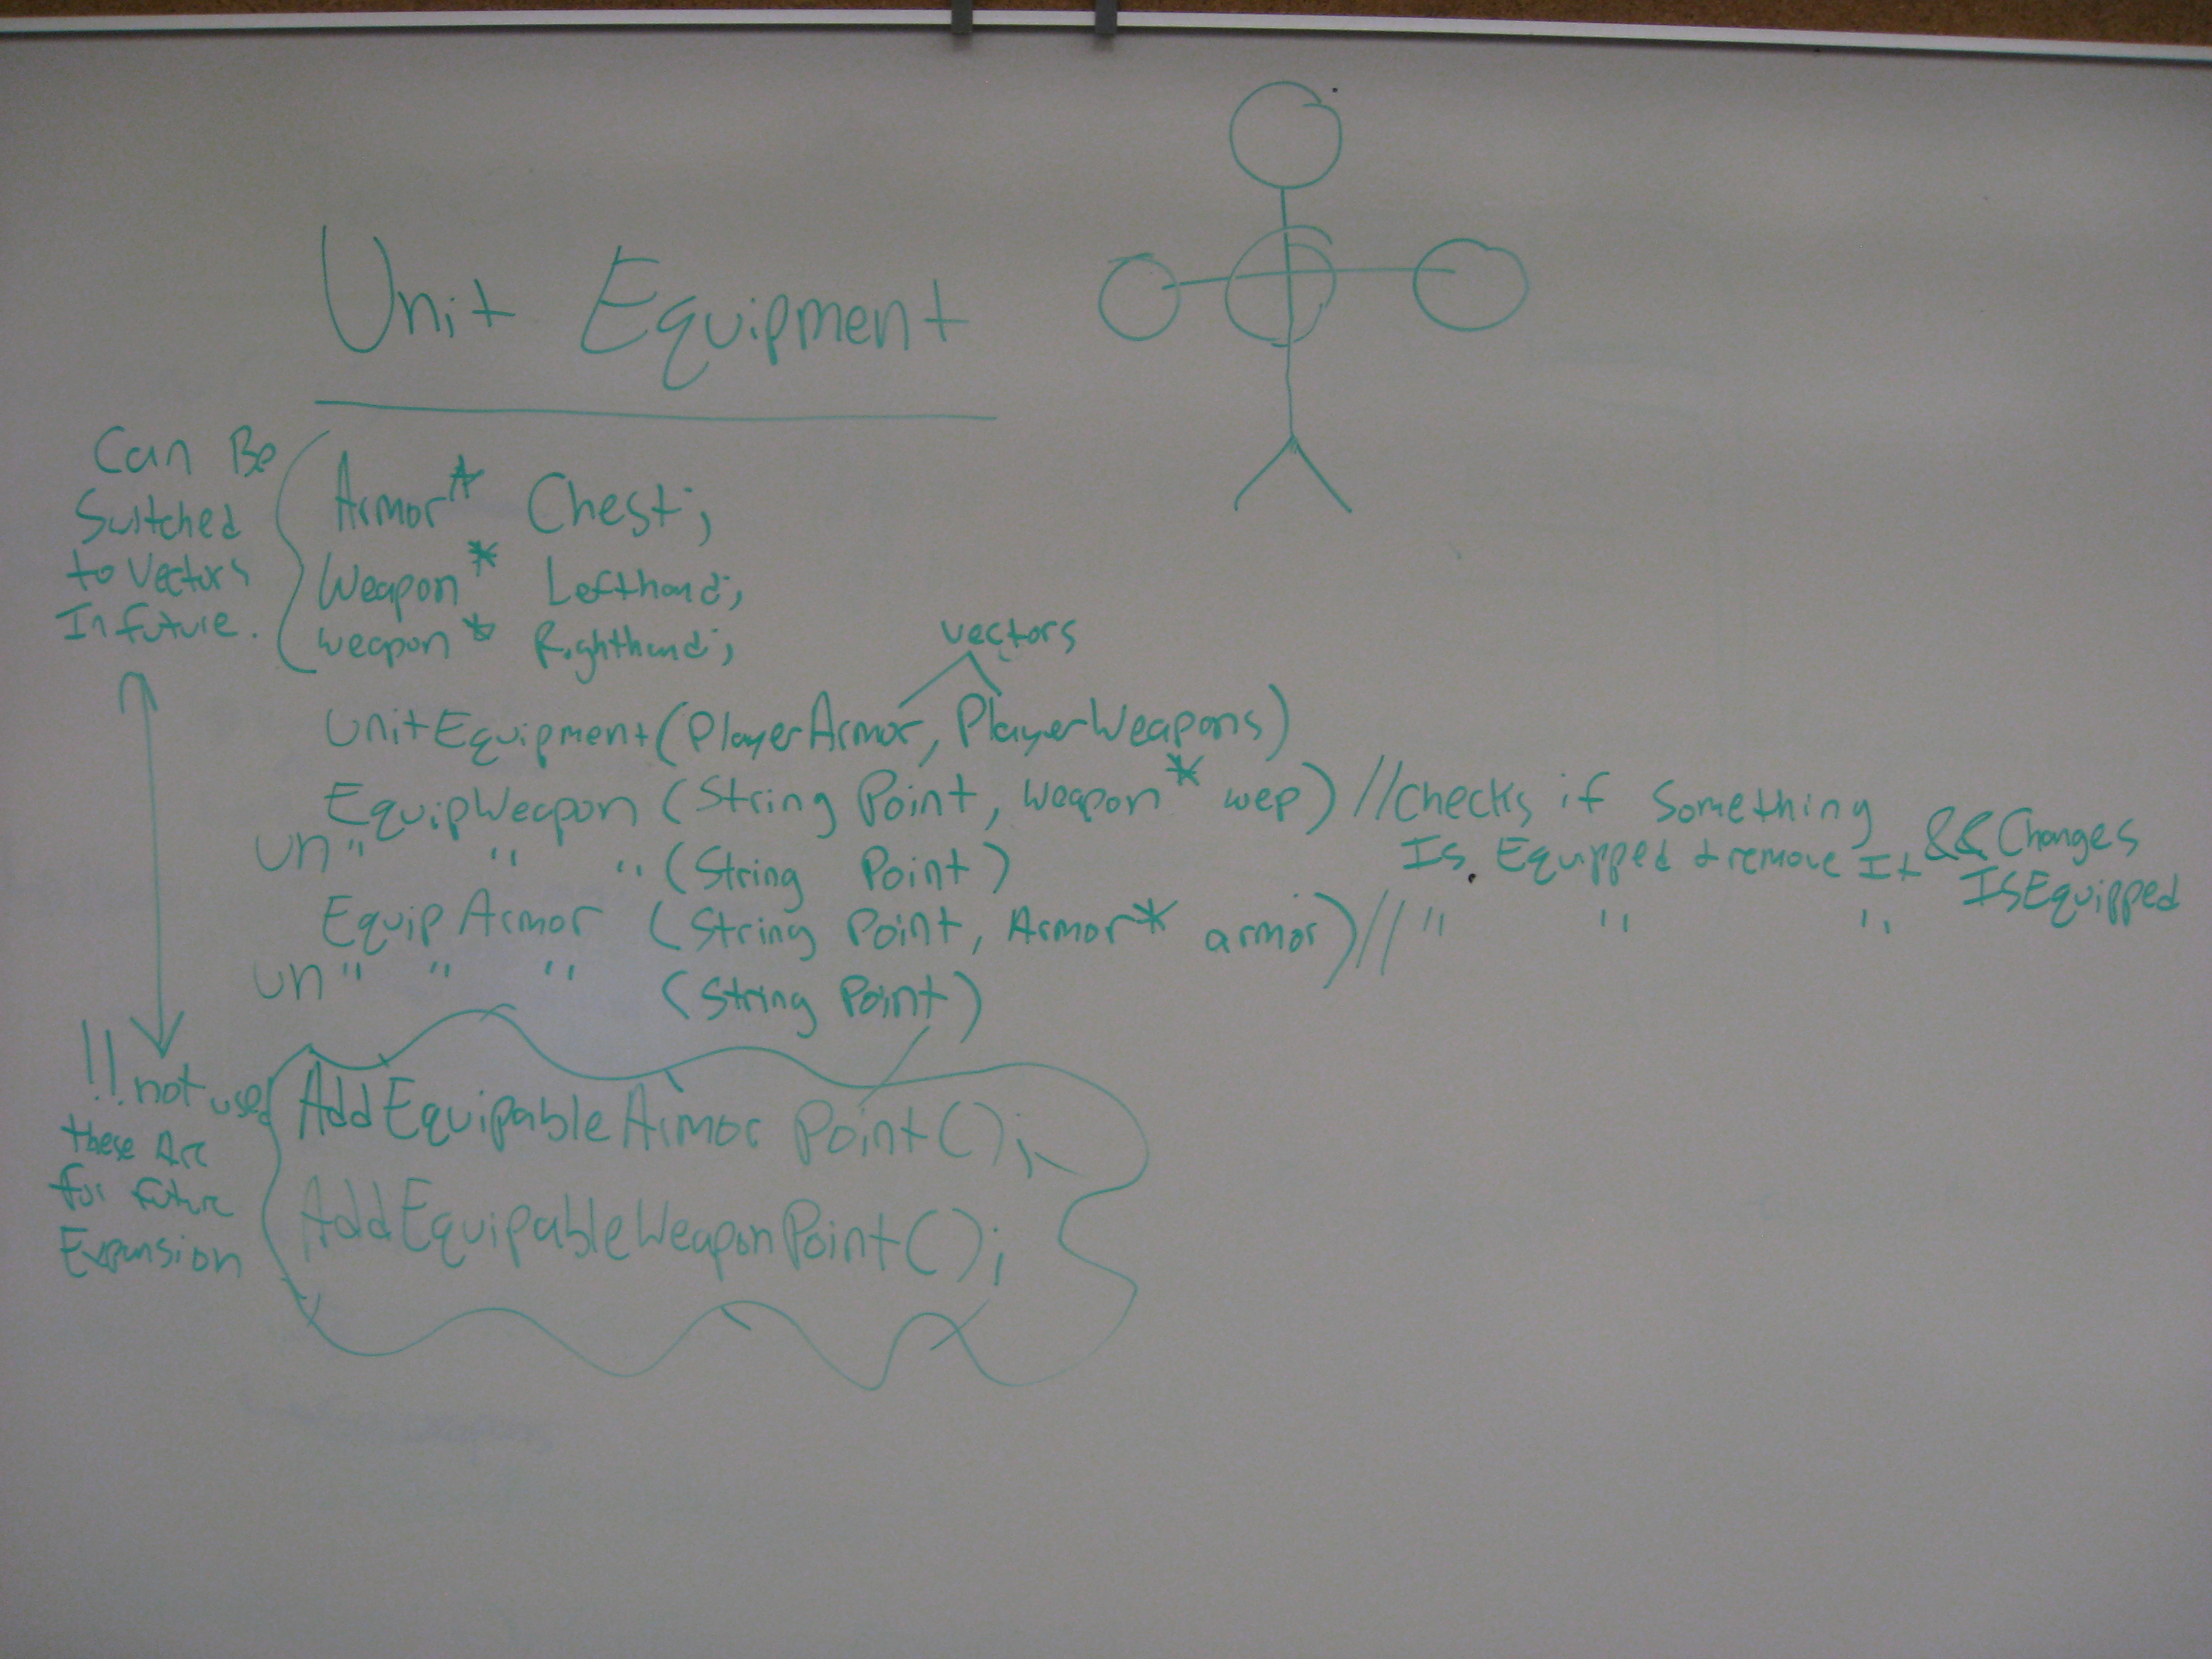 Unit Equipment
Can Be
Switched
to Vectors
In future.
Armor* Chest;
Weapon* Lefthand;
weapon* Righthand;
vectors
UnitEquipment(PlayerArmor, PlayerWeapons)
EquipWeapon (String Point, weapon* wep) //Checks if Something
Is Equipped + remove It && Changes
IsEquipped
un " " " (String Point)
Equip Armor (String Point, Armor* armor) // " " "
un " " " (String Point)
!! not used
these Are
for future
Expansion
AddEquipableArmor Point();
AddEquipableWeaponPoint();